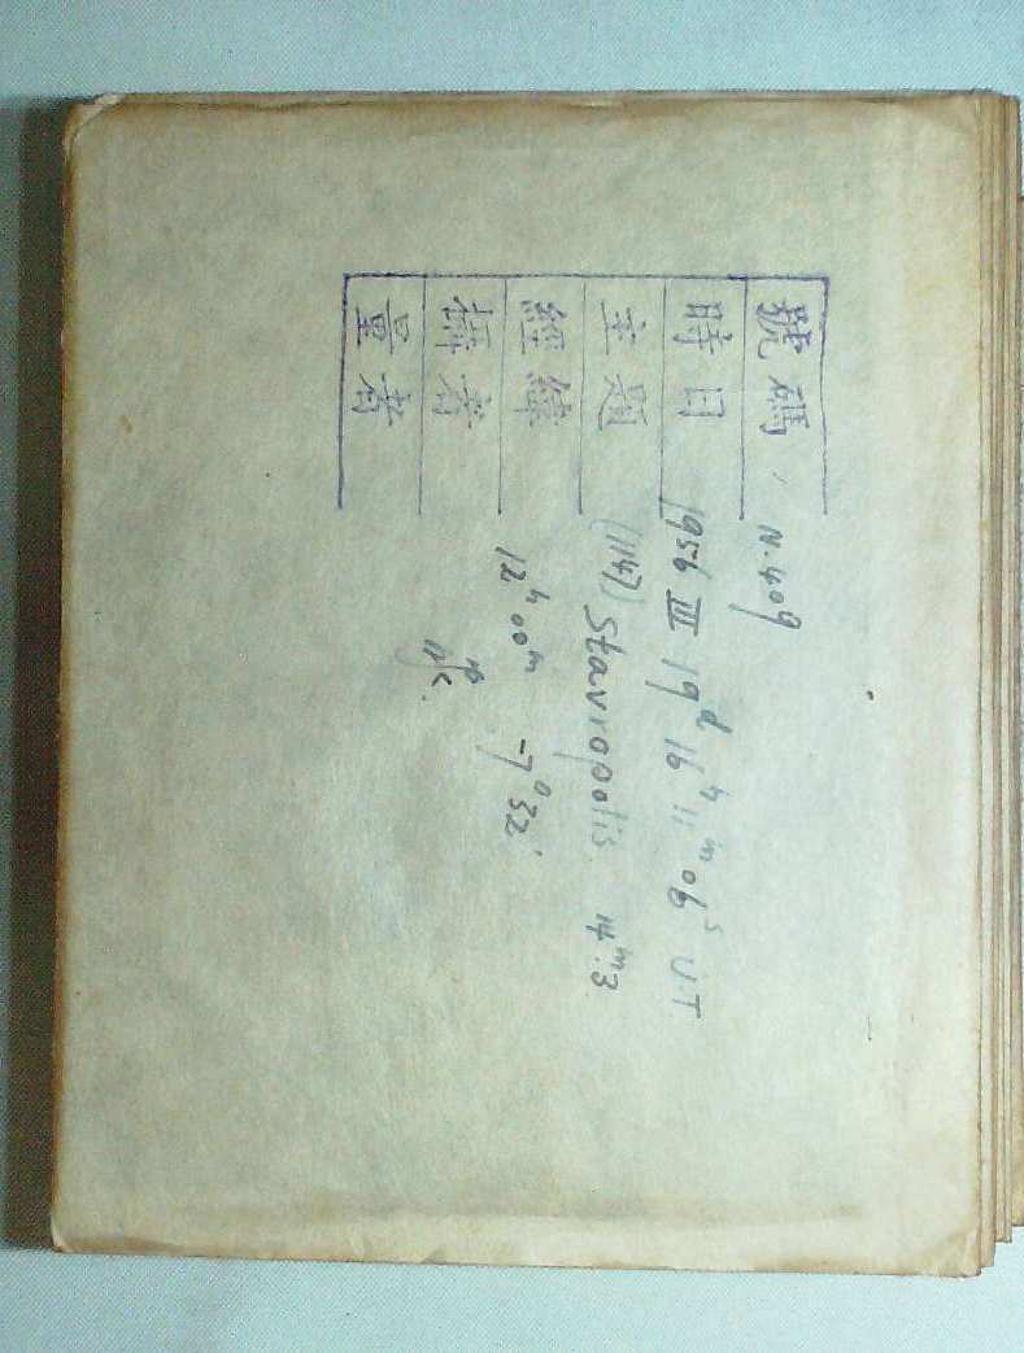 號碼 N.409
時日 1956 III 19ᵈ 16ʰ 11ᵐ 06ˢ U.T
主題 (1147) Stavropolis 14ᵐ.3
經緯 12ʰ00ᵐ -7°32'
攝者
量者